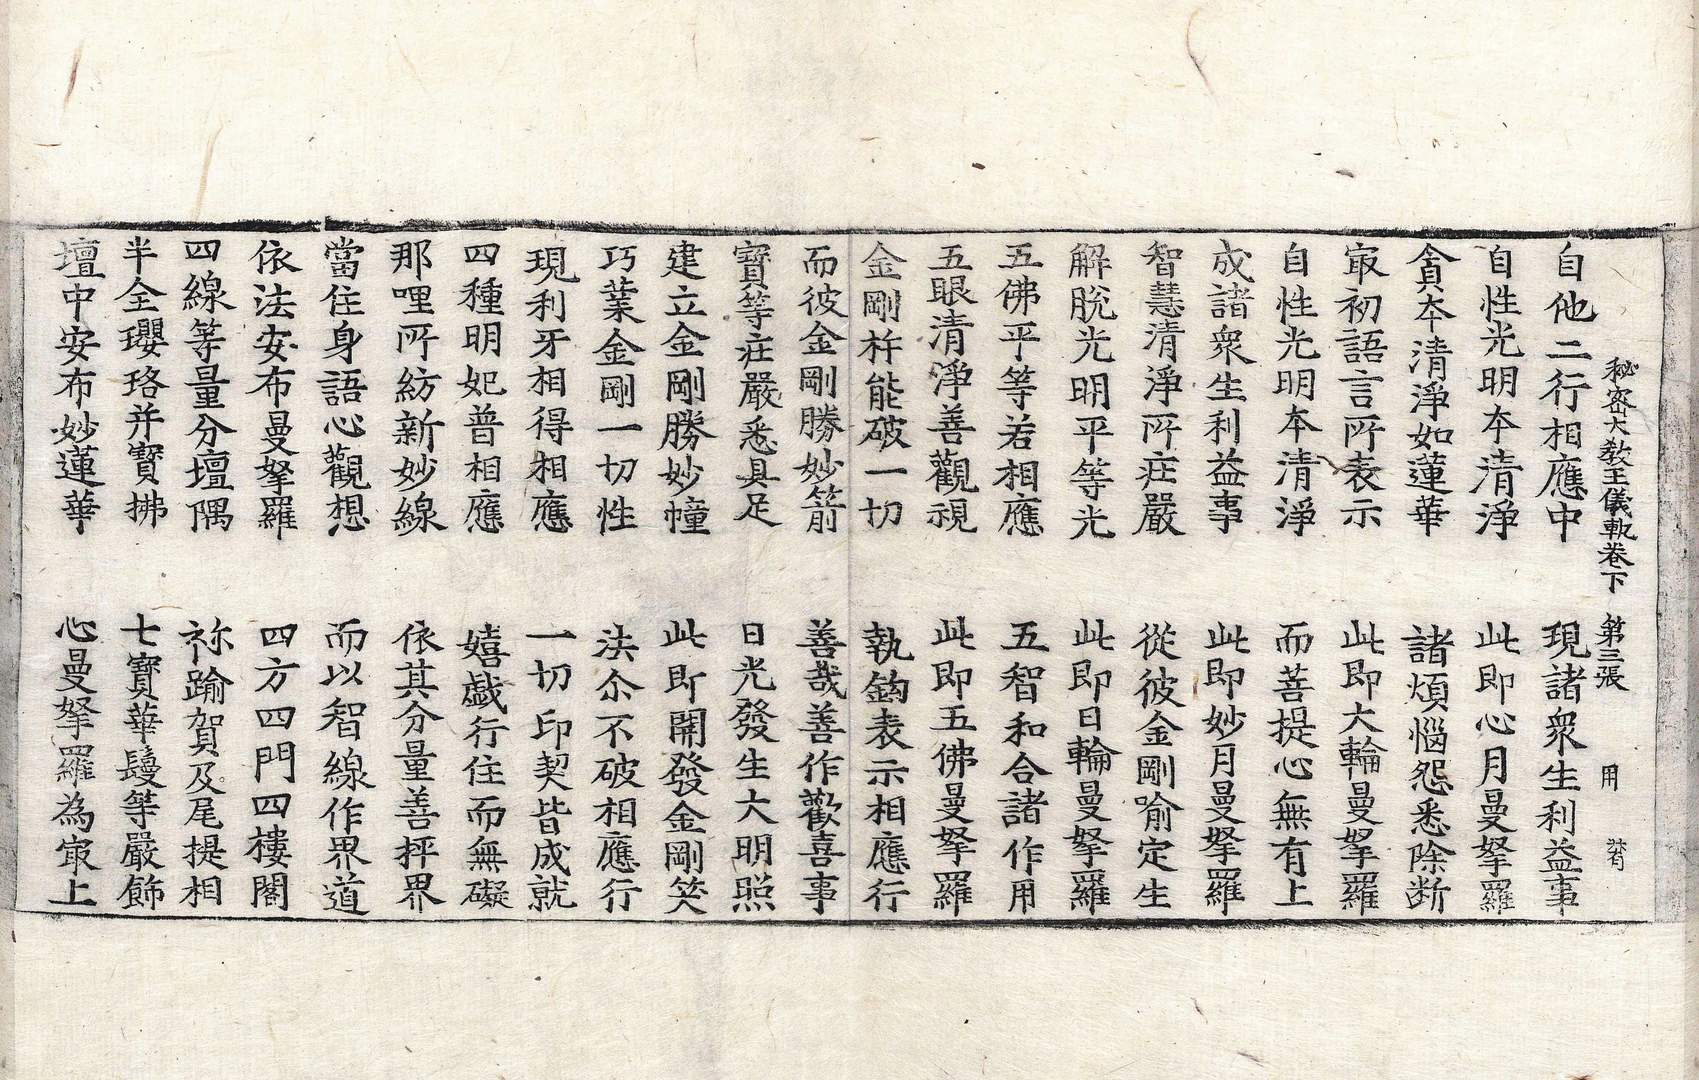 秘密大教王儀軌卷下 第三張 用
自他二行相應中 現諸衆生利益事
自性光明本清淨 此即心月曼拏羅
貪本清淨如蓮華 諸煩惱怨悉除断
㝡初語言所表示 此即大輪曼拏羅
自性光明本清淨 而菩提心無有上
成諸衆生利益事 此即妙月曼拏羅
智慧清淨所莊嚴 從彼金剛喻定生
解脫光明平等光 此即日輪曼拏羅
五佛平等若相應 五智和合諸作用
五眼清淨善觀視 此即五佛曼拏羅
金剛杵能破一切 執鉤表示相應行
而彼金剛勝妙箭 善哉善作歡喜事
寶等莊嚴悉具足 日光發生大明照
建立金剛勝妙幢 此即開發金剛笑
巧業金剛一切性 法尒不破相應行
現利牙相得相應 一切印契皆成就
四種明妃普相應 嬉戲行住而無礙
那哩所紡新妙線 依其分量善抨界
當住身語心觀想 而以智線作界道
依法安布曼拏羅 四方四門四樓閣
四線等量分壇隅 祢踰賀及尾提相
半全瓔珞并寶拂 七寶華鬘等嚴飾
壇中安布妙蓮華 心曼拏羅為㝡上